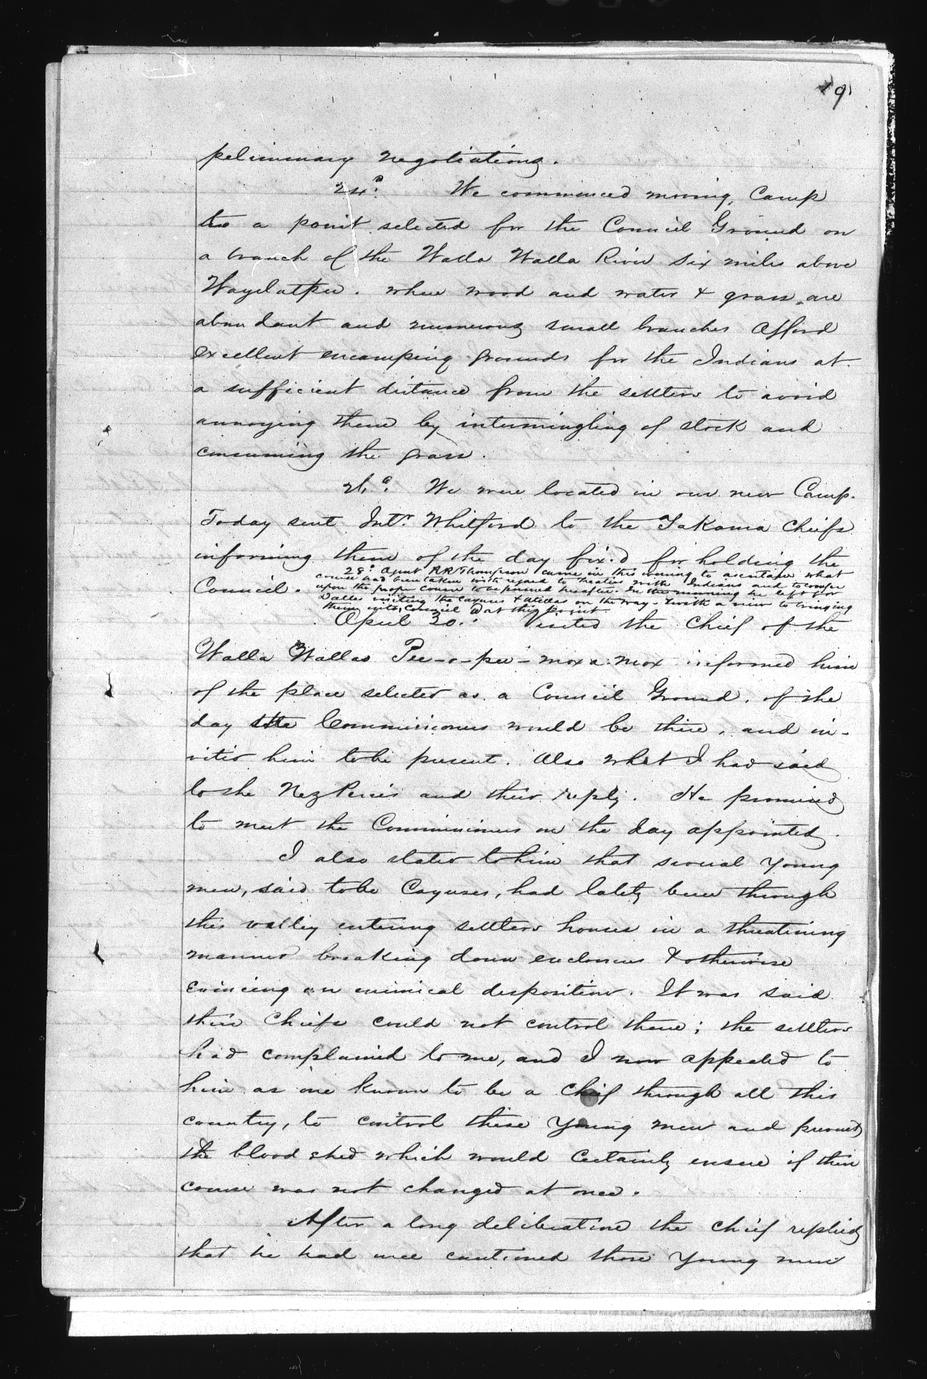 19
pelimmary negotiations.
24th We commenced moving Camp
to a point selected for the Council Ground on
a branch of the Walla Walla River six miles above
Wayelatpu. where wood and water & grass are
abundant and numerous small branches afford
excellent encamping grounds for the Indians at
a sufficient distance from the settlers to avoid
annoying them by intermingling of stock and
consuming the grass.
26th We were located in our new Camp.
Today sent Intr Whitford to the Yakama Chiefs
informing them of the day fix'd for holding the
28th Agent RR Thompson came in this evening to ascertain what
course had been taken with regard to treaties with Indians and to confer
Council. upon the proper course to be pursued hereafter. In the morning he left for
Dalles visiting the Cayuses & Utillas on the way - with a view to bringing
them into Council at this point
April 30th Visited the Chief of the
Walla Wallas Pee-o-pee-mox a mox informed him
of the place selected as a Council Ground, of the
day the Commissioners would be there, and in-
vited him to be present. Also what I had said
to the Nez Perces and their reply. He promised
to meet the Commissioners on the day appointed.
I also stated to him that several Young
men, said to be Cayuses, had lately been through
this valley entering settlers houses in a threatining
manner breaking down enclosures & otherwise
evincing an inimical disposition. It was said
their Chiefs could not control them; the settlers
had complained to me, and I now appealed to
him as one known to be a Chief through all this
country, to control these Young men and prevent
the blood shed which would certainly ensue if their
course was not changed at once.
After a long deliberation the Chief replied
that he had once cautioned those Young men